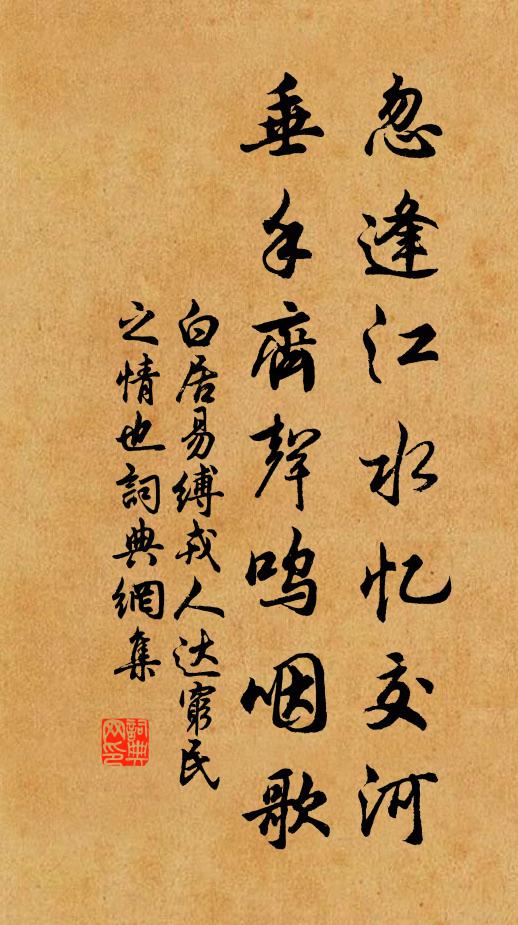 忽逢江水忆交河
垂手齊聲呜咽歌
白居易缚戎人达窮民
之情也詞典網集
詞典
网印